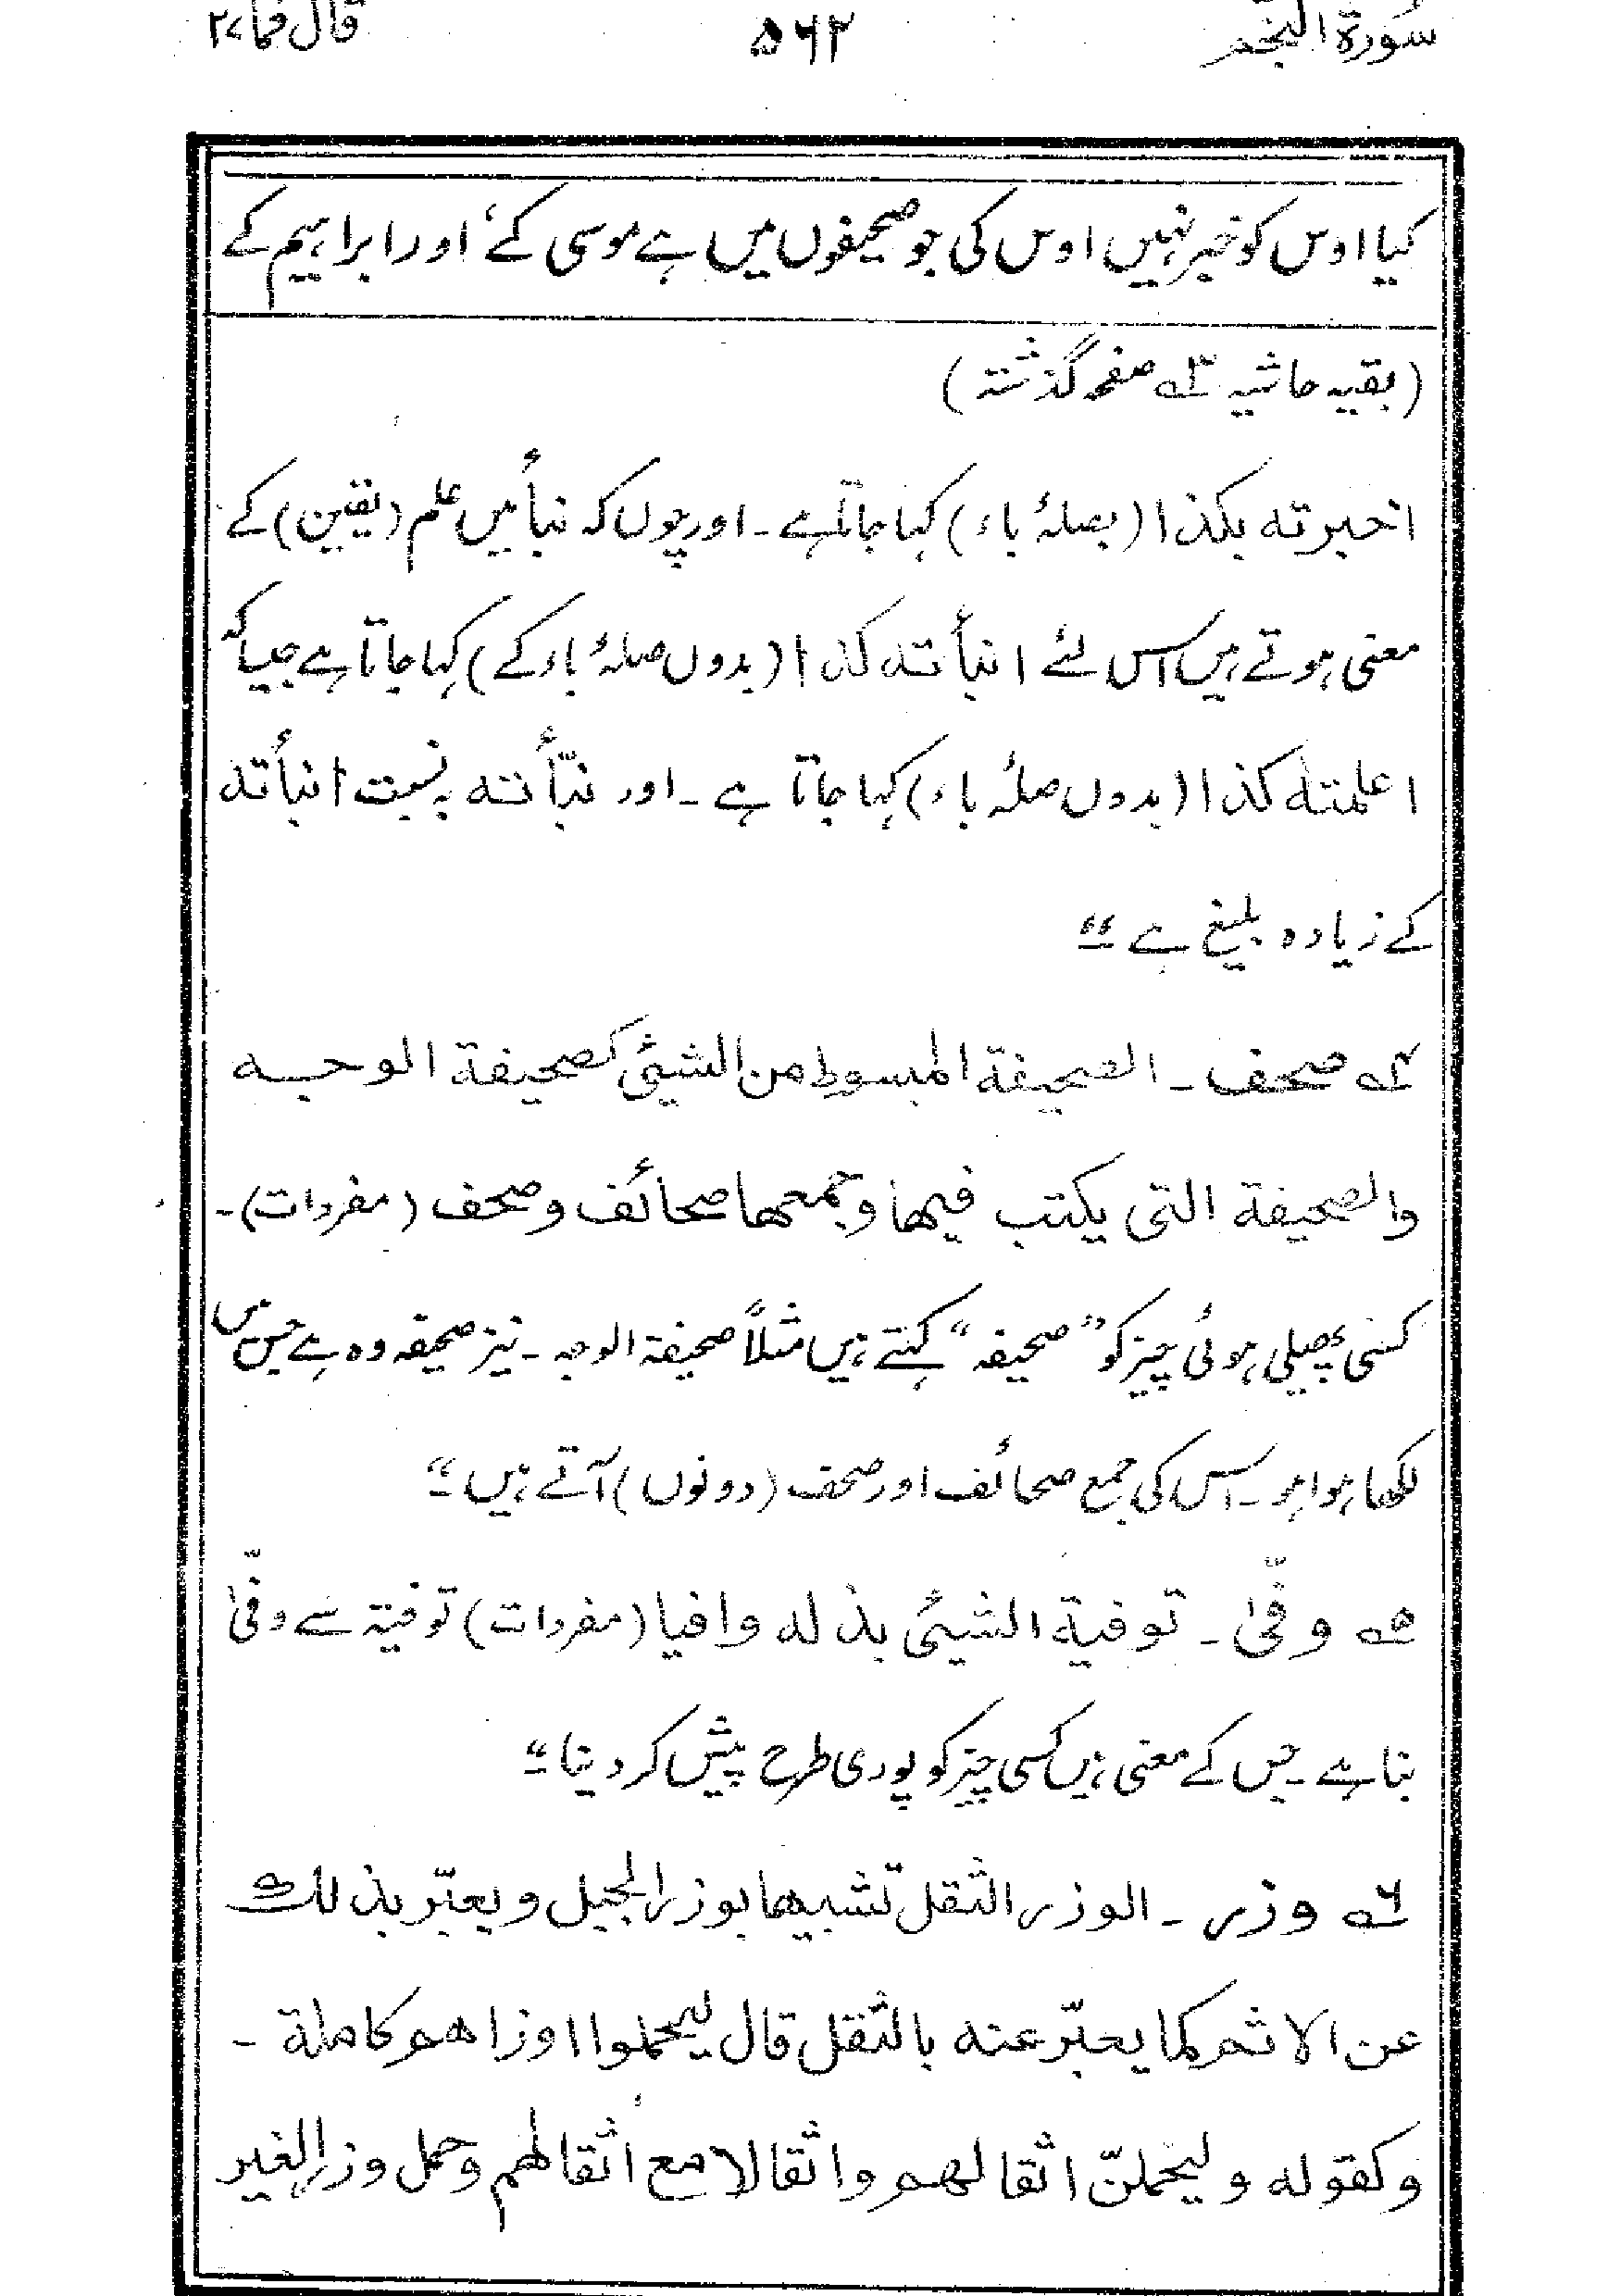 سُورۃ النّجم ۵۶۲ قال فما ۲۷
کیا اوس کو خبر نہیں اوس کی جو صحیفوں میں ہے موسی کے، اور ابراہیم کے
(بقیہ حاشیہ ۳ صفحہ گذشتہ)
اخبرتہ بکذا (بصلۂ باء) کہا جاتا ہے۔ اور چوں کہ نبأ میں علم (یقین) کے
معنی ہوتے ہیں اس لئے انبأتہ کذا (بدوں صلۂ باء کے) کہا جاتا ہے جیسا کہ
اعلمتہ کذا (بدوں صلۂ باء) کہا جاتا ہے۔ اور نبّأتہ بہ نسبت انبأتہ
کے زیادہ بلیغ ہے“
۴ صحف۔ الصحیفۃ المبسوط من الشیئ کصحیفۃ الوجہ
والصحیفۃ التی یکتب فیہا وجمعہا صحائف وصحف (مفردات)۔
کسی پھیلی ہوئی چیز کو ”صحیفہ“ کہتے ہیں مثلاً صحیفۃ الوجہ۔ نیز صحیفہ وہ ہے جس میں
لکھا ہوا ہو۔ اس کی جمع صحائف اور صحف (دونوں) آتے ہیں“
۵ وفّٰی۔ توفیۃ الشیئی بذلہ وافیا (مفردات) توفیۃ سے وفّٰی
بنا ہے۔ جس کے معنی ہیں کسی چیز کو پوری طرح پیش کر دینا“
۶ وزر۔ الوزر الثقل تشبیھا بوزر الجبل ویعبّر بذلك
عن الاثم کما یعبّر عنہ بالثقل قال لیحملوا اوزاھم کاملۃ۔
وکقولہ ولیحملنّ اثقالھم واثقالا مع اثقالھم وحمل وزر الغیر